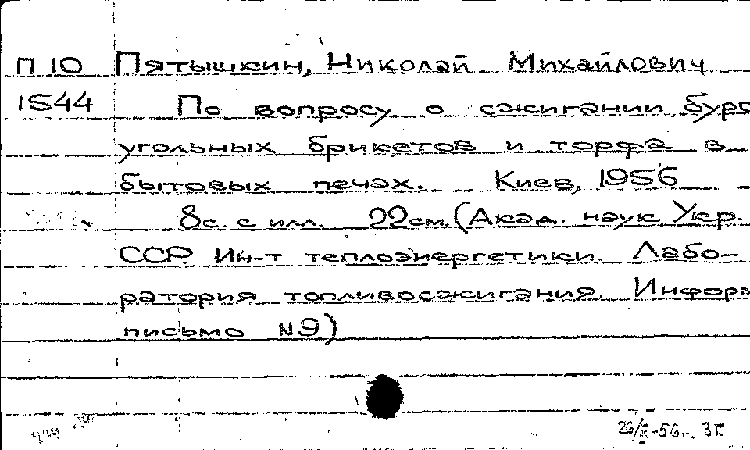 П 10 Пятышкин, Николай Михайлович
1544 По вопросу о сжигании буро
угольных брикетов и торфа в
бытовых печах. Киев, 1956
8с. с илл. 22см. (Акад. наук Укр.
ССР. Ин-т теплоэнергетики. Лабо-
ратория топливосжигания. Информ
письмо №9)